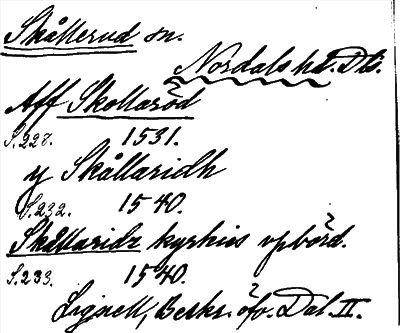 Skållerud sn.
Nordals hd. Dls.
Aff Skollaröd
S. 228. 1531.
y Skållaridh
S. 232. 1540.
Skållaridz kyrkies vpbörd.
S. 233. 1540.
Lignell, Beskr. öfv. Dal. II.